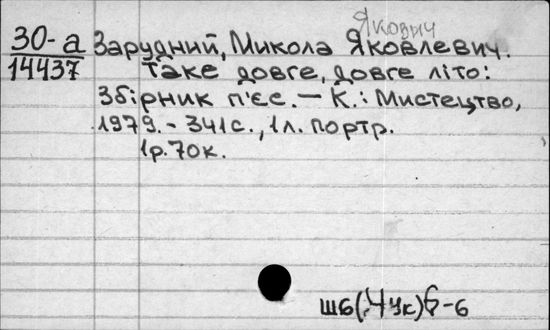 Яковыч
30-а Зарудний, Микола Яковлевич.
14437 Таке довге, довге літо:
Збірник п'єс. – К.: Мистецтво,
1979. – 341с., 1л. портр.
1р.70к.
Ш6(4Ук)6-6